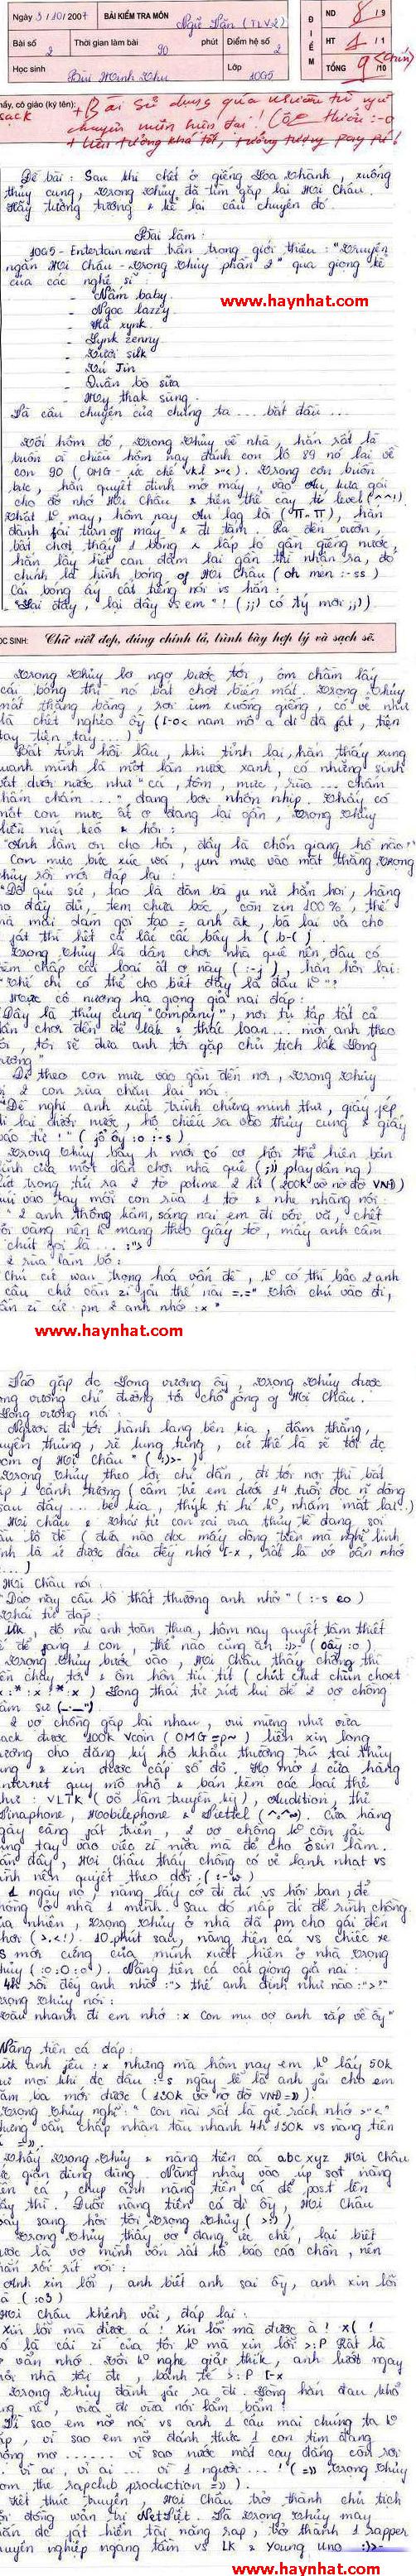 Ngày 3/10/2007 BÀI KIỂM TRA MÔN Ngữ Văn (TLV2)
Bài số 2 Thời gian làm bài 90 phút Điểm hệ số 2
Học sinh Bùi Minh Thu Lớp 10G5
ĐIỂM
ND 8/9
HT 1/1
TỔNG 9/10 (chín)
thầy, cô giáo (ký tên):
+ Bài sử dụng quá nhiều từ ngữ
chuyên môn hiện đại!
+ Liên tưởng khá tốt, tưởng tượng
Đề bài: Sau khi chết ở giếng Loa Thành, xuống
thủy cung, Trọng Thủy đã tìm gặp lại Mị Châu.
Hãy tưởng tượng & kể lại câu chuyện đó.
Bài làm:
10G5 - Entertainment trân trọng giới thiệu: "Truyện
ngắn Mị Châu - Trọng Thủy phần 2" qua giọng kể
của các nghệ sĩ:
- Nấm baby.
- Ngọc lazzy
- Hà xynk.
- Lynk zenny
- Tú Jin
- Quân bò sữa
- My thak sùng.
Và câu chuyện của chúng ta... bắt đầu...
www.haynhat.com
Tối hôm đó, Trọng Thủy về nhà, hắn rất là
buồn vì chiều hôm nay đánh con lô 89 nó lại về
con 90 (OMG - ức chế vkl >"<). Trong cơn buồn
bực, hắn quyết định mở máy, vào Au lừa gái
cho đỡ nhớ Mị Châu & tiện thể cày tí level (^^!).
Thật k° may, hôm nay Au lag lòi (π_π), hắn
đành fải turn off máy & đi tắm. Ra đến vườn,
bất chợt thấy 1 bóng lấp ló gần giếng nước,
hắn lấy hết can đảm lại gần thì nhận ra, đó
chính là hình bóng of Mị Châu (oh men :-ss)
Cái bóng ấy cất tiếng nói vs hắn:
"Lại đây, lại đây vs em"! (;;) cố tỷ mới ;;))
HỌC SINH: Chữ viết đẹp, đúng chính tả, trình bày hợp lý và sạch sẽ.
Trọng Thủy lơ ngơ bước tới, ôm chầm lấy
cái bóng thì nó bất chợt biến mất. Trọng Thủy
mất thăng bằng, rơi ùm xuống giếng có vẻ như
là chết nghẻo ồy (I-o< nam mô a di đà fật, tiện
tay tiện tay...)
Bất tỉnh hồi lâu, khi tỉnh lại, hắn thấy xung
quanh mình là một làn nước xanh, có những sinh
vật dưới nước như "cá, tôm, mực, rùa... chấm
chấm chấm...", đang bơi nhộn nhịp. Thấy có
một con mực ất ơ đang lại gần, Trọng Thủy
liền níu kéo & hỏi:
"Anh làm ơn cho hỏi, đây là chốn giang hồ nào?"
Con mực bức xúc, fun mực vào mặt thằng Trọng
Thủy rồi mới đáp lại:
"Đồ quỉ sứ, tao là đàn bà fụ nữ hẳn hoi, hàng
họ đầy đủ, tem chưa bóc, còn zin 100%, thế
mà mài dám gọi tao = anh ák, bà lại vả cho
fát thì hết cả lấc cấc bây h (b-()."
Trọng Thủy là dân chơi nhà quê nên đâu có
thèm chấp cái loại ất ơ này (:-j), hắn hỏi lại:
"Thế chị có thể cho biết đây là đâu k°"?
Mực cố nương hạ giọng giả nai đáp:
"Đây là thủy cung "company", nơi tụ tập tất cả
dân chơi đến để lắk & thák loạn... mời anh theo
tôi, tôi sẽ đưa anh tới gặp chủ tịch lắk Long
Vương"
Đi theo con mực vào gần đến nơi, Trọng Thủy
bị 2 con rùa chặn lại nói:
"Đề nghị anh xuất trình chứng minh thư, giấy fép
đi lại dưới nước, hộ chiếu ra vào thủy cung & giấy
báo tử!" (:o :-s)
Trọng Thủy bây h mới có cơ hội thể hiện bản
lĩnh của một dân chơi nhà quê (;)) play dân ng)
rút trong túi ra 2 tờ polime 2 lít (200k vờ nờ đờ VND)
dúi vào tay mỗi con rùa 1 tờ & nhẹ nhàng nói:
"2 anh thông kảm, sáng nai em đi vội vã, chết
vội vàng nên k° mang theo giấy tờ, mấy anh cầm
chút gọi là... :">
2 rùa làm bộ:
"Chú cứ quan trọng hoá vấn đề, k° có thì bảo 2 anh
1 câu chứ cần zì fải thế nài =.=" Thôi chú vào đi,
cần zì cứ pm 2 anh nhớ :x"
www.haynhat.com
Vào gặp đc Long Vương ồy, Trọng Thủy được
Long Vương chỉ đường tới chỗ fòng of Mị Châu.
Long Vương nói:
"Ngươi đi tới hành lang bên kia, đâm thẳng,
xuyên thủng, rẽ lung tung, cứ thế là sẽ tới đc
room of Mị Châu" (:)>-)
Trọng Thủy theo lời chỉ dẫn, đi tới nơi thì bắt
gặp 1 cảnh tượng (cấm trẻ em dưới 14 tuổi đọc n~ dòng
sau đây...)
Mị Châu & thái tử con zai vua thủy tề đang soi
cầu lô đề (đứa nào đọc mấy dòng trên mà nghĩ linh
tinh là ứ được đâu đấy nhớ [-x, rất là vớ vẩn nhớ
...)
Mị Châu nói:
"Dạo này cầu lô thất thường anh nhở" (:-s eo)
Thái tử đáp:
"Uk, độ nài anh toàn thua, hôm nay quyết tâm thiết
kế để fang 1 con, thế nào cũng ăn :)>- (oây :o)
Trọng Thủy bước vào, Mị Châu thấy chồng thì
liền chạy tới & ôm hôn túi tít (chút chut chùn choẹt
:x:*:x:*:x) Long thái tử rút lui để 2 vợ chồng
tâm sự (-_-").
2 vợ chồng gặp lại nhau, vui mừng như vừa
hack được 100k Vcoin (OMG =p~) liền xin long
vương cho đăng ký hộ khẩu thường trú tại thủy
cung & xin được cấp sổ đỏ. Họ mở 1 cửa hàng
internet quy mô nhỏ & bán kèm các loại thẻ
như: VLTK (võ lâm truyền kỳ), Audition, thẻ
Vinaphone, Mobilephone & Viettel (^_^~). Cửa hàng
ngày càng fát triển, 2 vợ chồng k° còn fải
động tay vào việc zì nữa mà để cho ôsin làm.
Gần đây, Mị Châu thấy chồng có vẻ lạnh nhạt vs
mình nên quyết theo dõi. (:-w)
1 ngày nọ, nàng lấy cớ đi dự vs hội bạn, để
chồng ở nhà 1 mình. Sau đó nấp đi để rình chồng.
Quả nhiên, Trọng Thủy ở nhà đã pm cho gái đến
chơi (>.<!). 10 phút sau, nàng tiên cá vs chiếc xe
mới cứng của mình xuất hiện ở nhà Trọng
Thủy (:o:o:o). Nàng tiên cá cất giọng giả nai:
"4h rồi đấy anh nhở :"> thế anh định như nào :">?"
Trọng Thủy nói:
"Tàu nhanh đi em nhớ :x con mụ vợ anh sắp về ồy"
Nàng tiên cá đáp:
anh iêu :x nhưng mà hôm nay em k° lấy 50k
như mọi khi đc đâu :-s ngày lễ là anh fải cho em
trăm ba mới được (130k vờ nờ đờ VND =)).
Trọng Thủy nghĩ: "Con nài rất là giẻ rách nhớ >"<"
nhưng vẫn chấp nhận tàu nhanh 4h 130k vs nàng tiên
cá =)).
Thấy Trọng Thủy & nàng tiên cá abc xyz Mị Châu
tức giận đùng đùng. Nàng nhảy vào úp sọt nàng
tiên cá, chụp ảnh nàng tiên cá để post lên
ấy thì. Đuổi nàng tiên cá đi ồy, Mị Châu
quay sang hỏi tội Trọng Thủy (>:))
Trọng Thủy thấy vợ đang ức chế, lại biết
trước là vợ mình vốn rất hổ báo cáo chồn, nên
hắn rối rít nói:
"Anh xin lỗi, anh biết anh sai ồy, anh xin lỗi
mà (:o3)
Mị Châu khệnh vãi, đáp lại:
"Xin lỗi mà được á! Xin lỗi mà được à! x(!
Đó là cái zì của tôi k° mà xin lỗi >:P Rất là
vớ vẩn nhớ. Tôi k° nghe giải thík, anh lướt ngay
khỏi nhà tôi đi, bánh tẻ >:P [-x
Trọng Thủy đành fải ra đi. Lòng hắn đau khổ
nặng nề, vừa đi vừa nói lẩm bẩm:
"Vì sao em nỡ nói vs anh 1 câu mai chúng ta k°
gặp, vì sao em nỡ đánh thức 1 con tim đang
mộng mơ...... vì sao nước mắt cay đắng còn rơi
... vì ai, vì ai... vì 1 người...! (=)) Trọng Thủy
from the rapclub production =)).
Kết thúc truyện, Mị Châu trở thành chủ tịch
hội đồng quản trị NetViet. Và Trọng Thủy may
mắn đc fát hiện tài năng rap, trở thành 1 rapper
chuyên nghiệp ngang tầm vs LK & Young Uno :)>-
www.haynhat.com